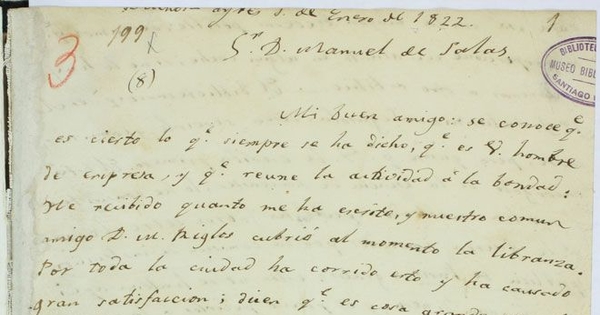 ayres 1. de Enero de 1822.
1
3
199
(8)
Sr. D. Manuel de Salas.
BIBLIOTE
MUSEO BIBL
SANTIAGO
Mi buen amigo: se conoce qe.
es cierto lo qe. siempre se ha dicho, qe. es V. hombre
de empresa, y qe. reune la actividad á la bondad:
He recibido quanto me ha escrito, y nuestro comun
amigo D. M. Riglos cubrió al momento la libranza.
Por toda la ciudad ha corrido esto y ha causado
gran satisfaccion; dicen qe. es cosa grande